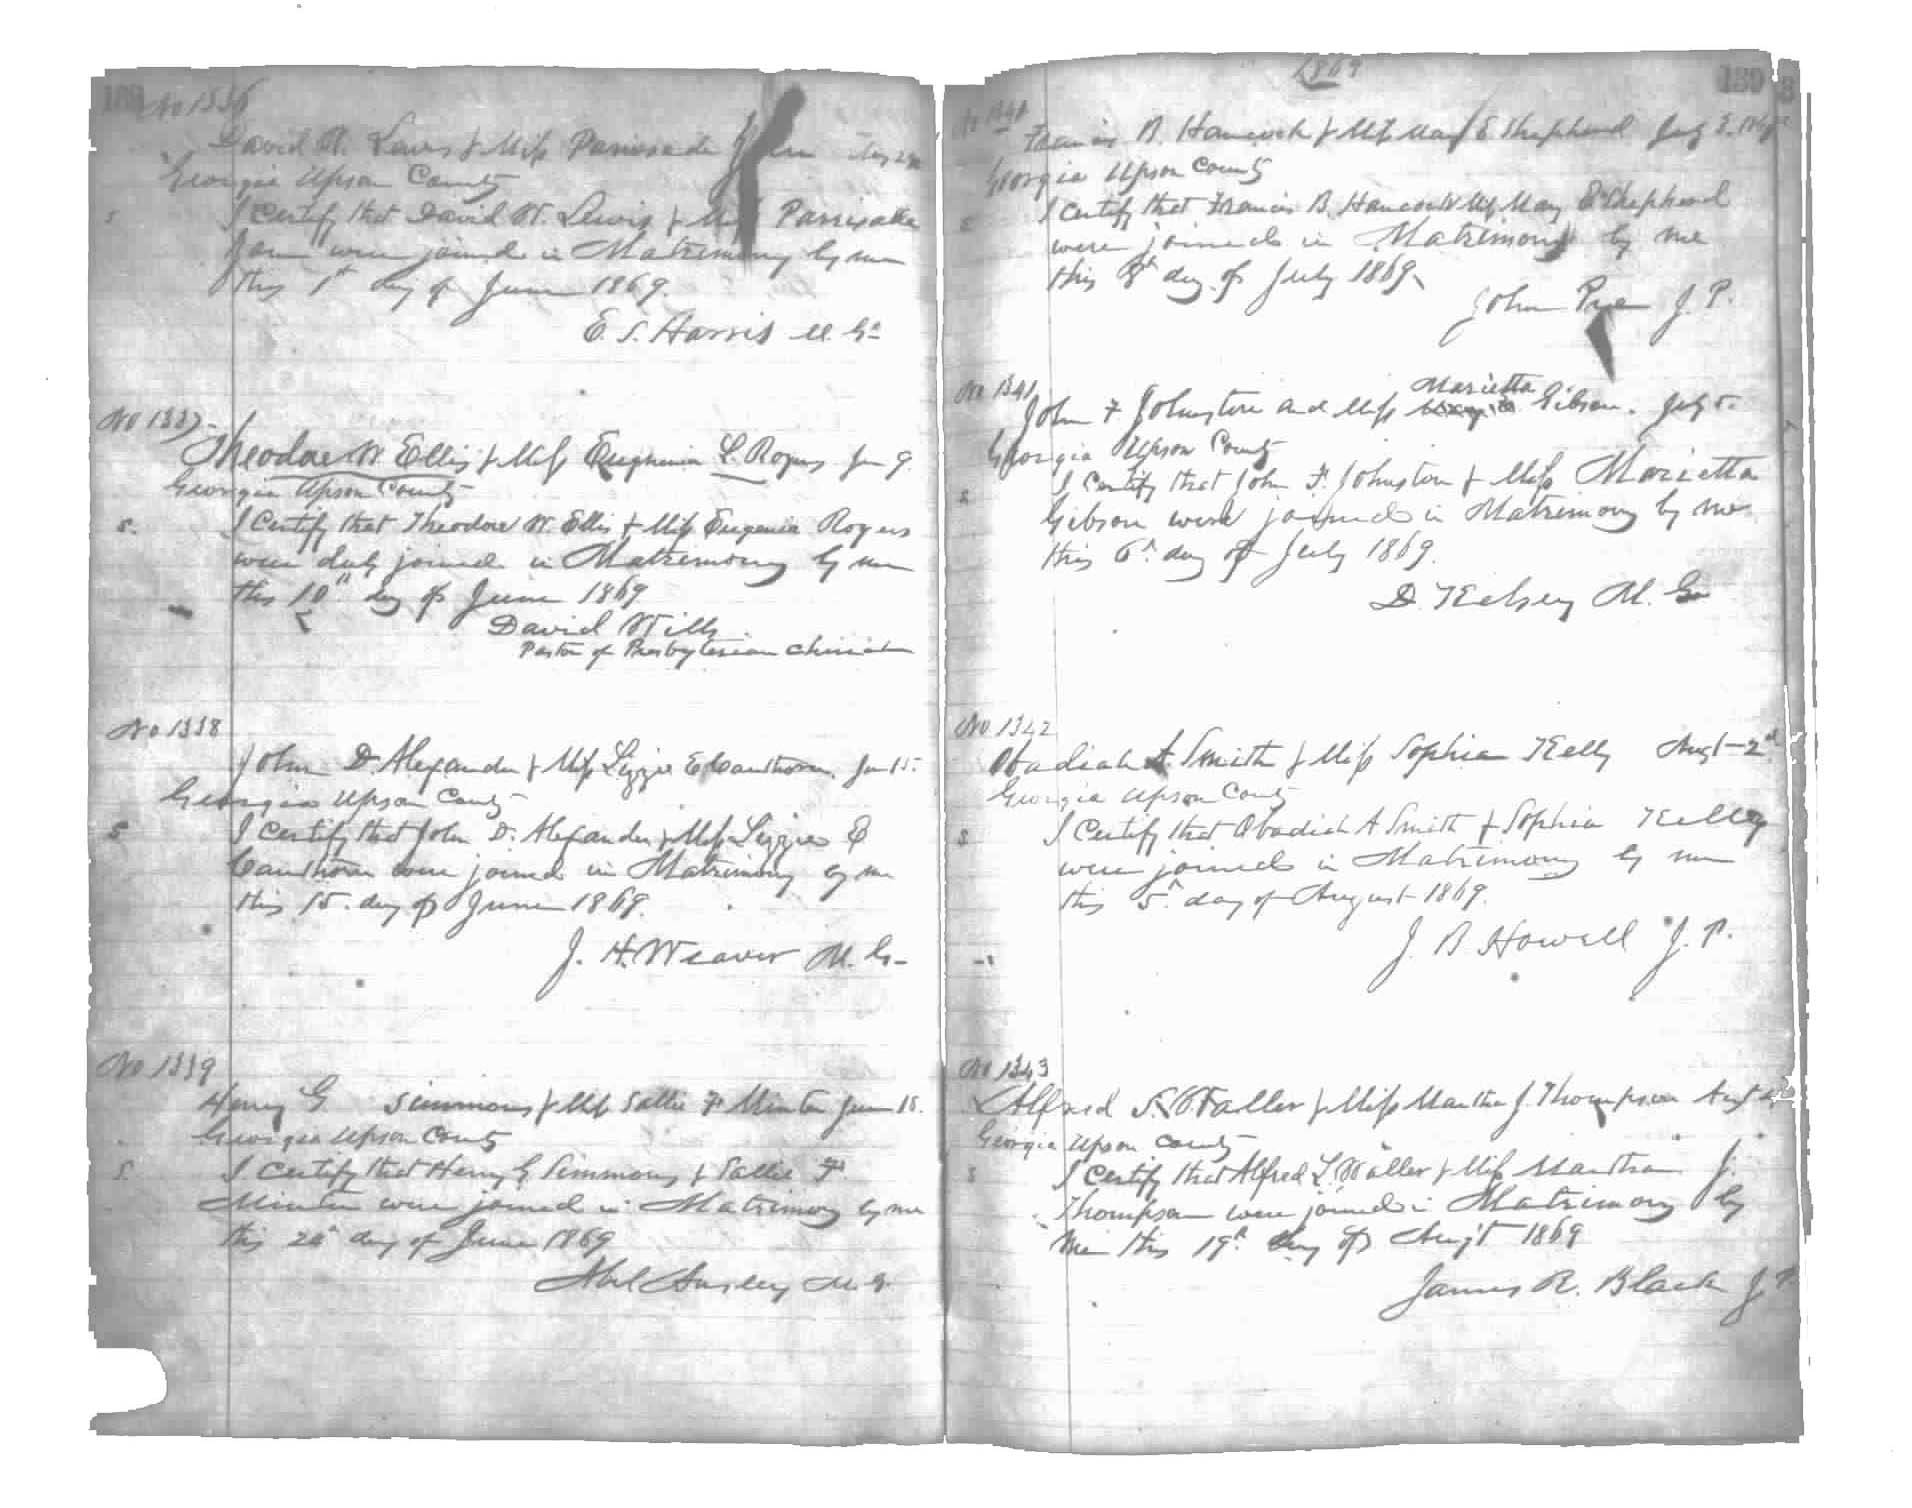 No 1336
David W. Lewis & Miss Parrisade
Georgia Upson County
S I certify that David W. Lewis & Miss Parrisade
were joined in Matrimony by me
this 1st day of June 1869.
E. S. Harris M. G.
No 1337
Theodore W. Ellis & Miss Eugenia L. Rogers Jun 9
Georgia Upson County
S. I Certify that Theodore W. Ellis & Miss Eugenia Rogers
were duly joined in Matrimony by me
this 10th day of June 1869
David Wills
Pastor of Presbyterian Church
No 1338
John D. Alexander & Miss Lizzie E Cauthorn. Jun 15.
Georgia Upson County
S I certify that John D. Alexander & Miss Lizzie E
Cauthorn were joined in Matrimony by me
this 15. day of June 1869.
J. H. Weaver M. G.
No 1339
Henry G Simmons & Miss Sallie F Minter June 18.
Georgia Upson County
S. I certify that Henry G Simmons & Sallie F.
Minter were joined in Matrimony by me
this 20th day of June 1869
Abel Ansley M G
1869
139
No 1340
Francis B. Hancock & Miss May E Shepherd July 3. 1869
Georgia Upson County
S I certify that Francis B. Hancock & Miss May E Shepherd
were joined in Matrimony by me
this 8th day of July 1869
John Pye J. P.
No 1341
John F Johnston and Miss Marietta Gibson. July 5.
Georgia Upson County
S I certify that John F. Johnston & Miss Marietta
Gibson were joined in Matrimony by me
this 6th day of July 1869.
D. Kelsey M. G.
No 1342
Obadiah A. Smith & Miss Sophia Kelly Augt 2d
Georgia Upson County
S I Certify that Obadiah A Smith & Sophia Kelley
were joined in Matrimony by me
this 5th day of August 1869.
J B Howell J. P.
No 1343
Alfred S. Waller & Miss Martha J. Thompson Augt
Georgia Upson County
S I Certify that Alfred L. Waller & Miss Martha J.
Thompson were joined in Matrimony by
me this 19th day of Augt 1869
James R. Black J P